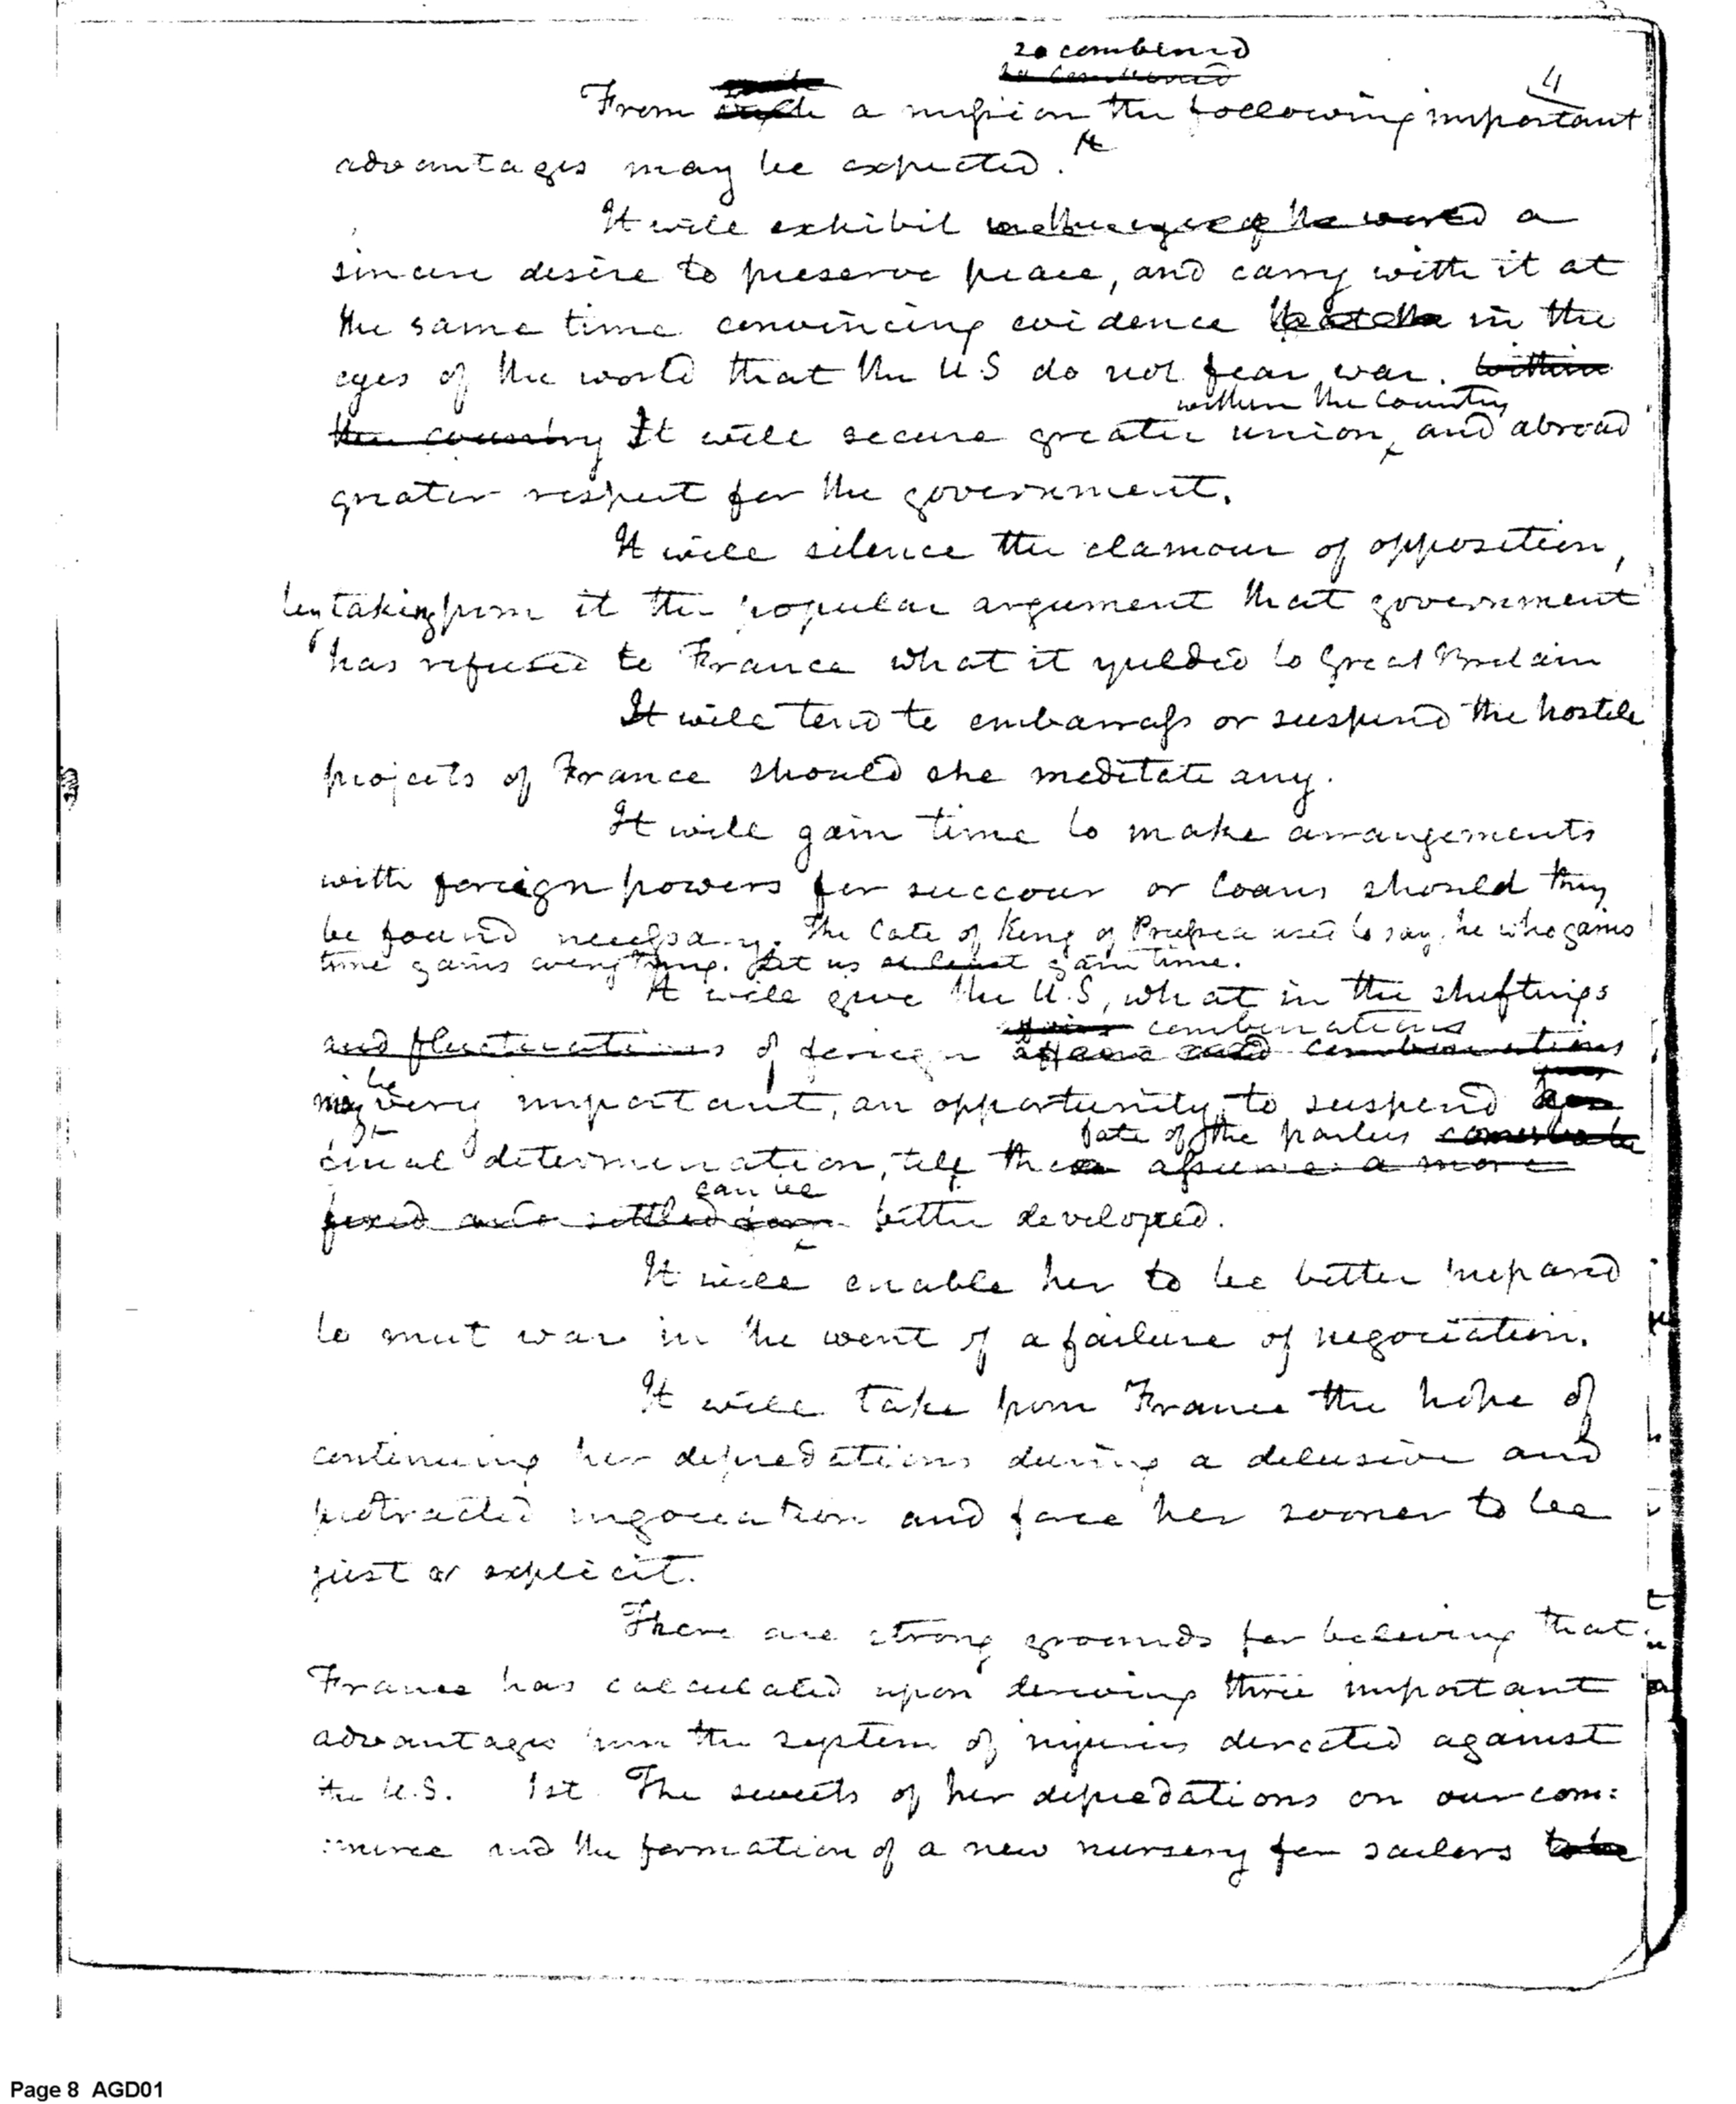 so combined
4
From a mission the following important
advantages may be expected.
It will exhibit in the eyes of the world a
sincere desire to preserve peace, and carry with it at
the same time convincing evidence in the
eyes of the world that the U.S do not fear war. within
within the Country
the country It will secure greater union, and abroad
greater respect for the government.
It will silence the clamour of opposition,
by taking from it the popular argument that government
has refused to France what it yielded to Great Britain
It will tend to embarrass or suspend the hostile
projects of France should she meditate any.
It will gain time to make arrangements
with foreign powers for succour or loans should they
be found necessary. The late of King of Prussia used to say, he who gains
time gains every thing. Let us at least gain time.
It will give the U.S, what in the shiftings
combinations
and fluctuations of foreign affairs and combinations
be
may very important, an opportunity to suspend
fate of the parties
final determination, till the assume a more
can be
fixed and settled form better developed.
It will enable her to be better prepared
to meet war in the event of a failure of negociation.
It will take from France the hope of
continuing her depredations during a delusive and
protracted negociation and force her sooner to be
just or explicit.
There are strong grounds for believing that
France has calculated upon deriving three important
advantages from the system of injuries directed against
the U.S. 1st The sweets of her depredations on our com:
:merce and the formation of a new nursery for sailors to be
Page 8 AGD01